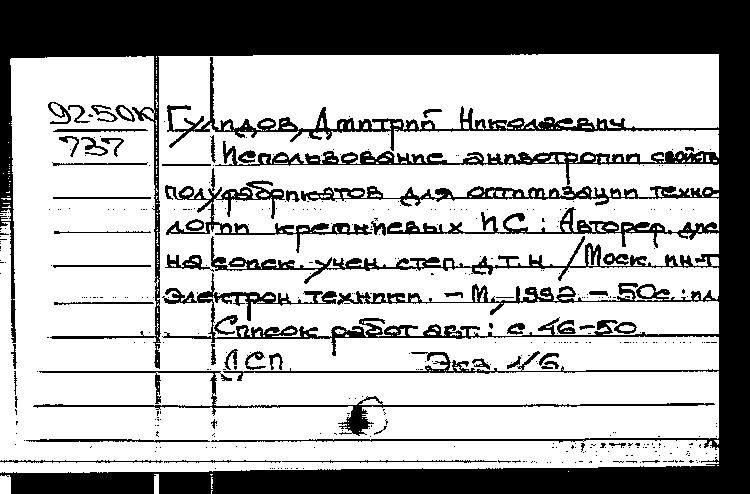 92-50к Гулидов, Дмитрий Николаевич.
737
Использование анизотропии свойств
полуфабрикатов для оптимизации техно-
логии кремниевых ИС : Автореф. дис
на соиск. учен. степ. д.т.н. / Моск. ин-т
электрон. техники. – М., 1992. – 50с. : ил.
Список работ авт.: с. 46-50.
ДСП Экз. 1/6.